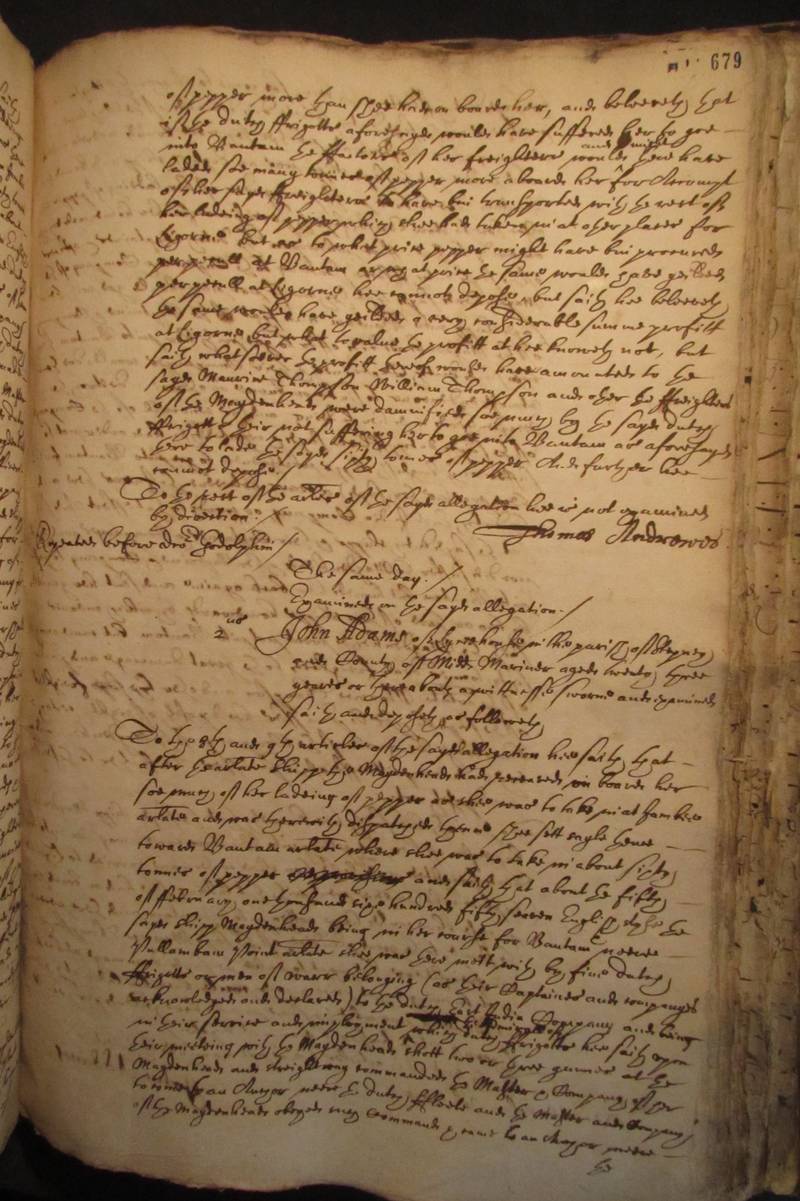 679
of pepper more than shee had on board her, and beleeveth that
if the dutch ffrigotts aforesayd would have suffered her to goe
into Bantam the ffactors of her freighters would and might have
laden soe many tonnes of pepper more aboard her for Accompt
of her sayd freighters to have bin transported with the rest of
her ladeing of pepper which shee had taken in at other places for
Legorne But as to what price pepper might have bin procured
per peecull at Bantam or what price the same would have yeilded
per peecull at Legorne hee cannot depose, but saith hee beleeveth
the same would have yeilded a very considerable summe profitt
at Legorne but what to value the profitt at hee knoweth not, but
saith whatsoever the profitt thereof would have amounted to the
sayd Maurice Thompson William Thompson and other the ffreighters
of the Maydenhead were damnifyed soe much by the sayd dutch
ffrigotts their not suffering her to goe into Bantam as aforesayd
there to lade the sayd sixty tonnes of pepper And further hee
cannot depose /
To the rest of the articles of the sayd allegation hee is not examined
by direction /
Thomas Andrewes
Repeated before doctor Godolphin /
The same day. /
Examined on the sayd allegation. /
2us
John Adams of Lymehouse in the parish of Stepney
and County of Midd Mariner aged twenty three
yeares or thereabouts a wittnesse sworne and examined
saith and deposeth as followeth
To the 8th and 9th articles of the sayd allegation hee saith that
after the arlate shipp the Maydenhead had received on board her
soe much of her ladeing of pepper as shee was to take in at
arlate and was therewith dispatched thence shee sett sayle thence
towards Bantam arlate where shee was to take in about sixty
tonnes of pepper and saith that about the fifth
of ffebruary one thousand sixe hundred fifty seaven English style the
sayd shipp Maydenhead being in her course for Bantam neere
Pullambam Point arlate shee was there mett with by five dutch
ffrigotts or men of warr belonging (as their Captaines and companyes
acknowledged and declared) to the dutch East India Company and being
in their service and imployment which dutch ffrigotts hee saith upon
their meeting with the Maydenhead shott two or three gunnes at the
Maydenhead and streightway commanded the Master & Company of her
to come to an Anchor neere the dutch ffleete and the Master and Company
of the Maydenhead obeyed theire command & came to an Anchor neere
the